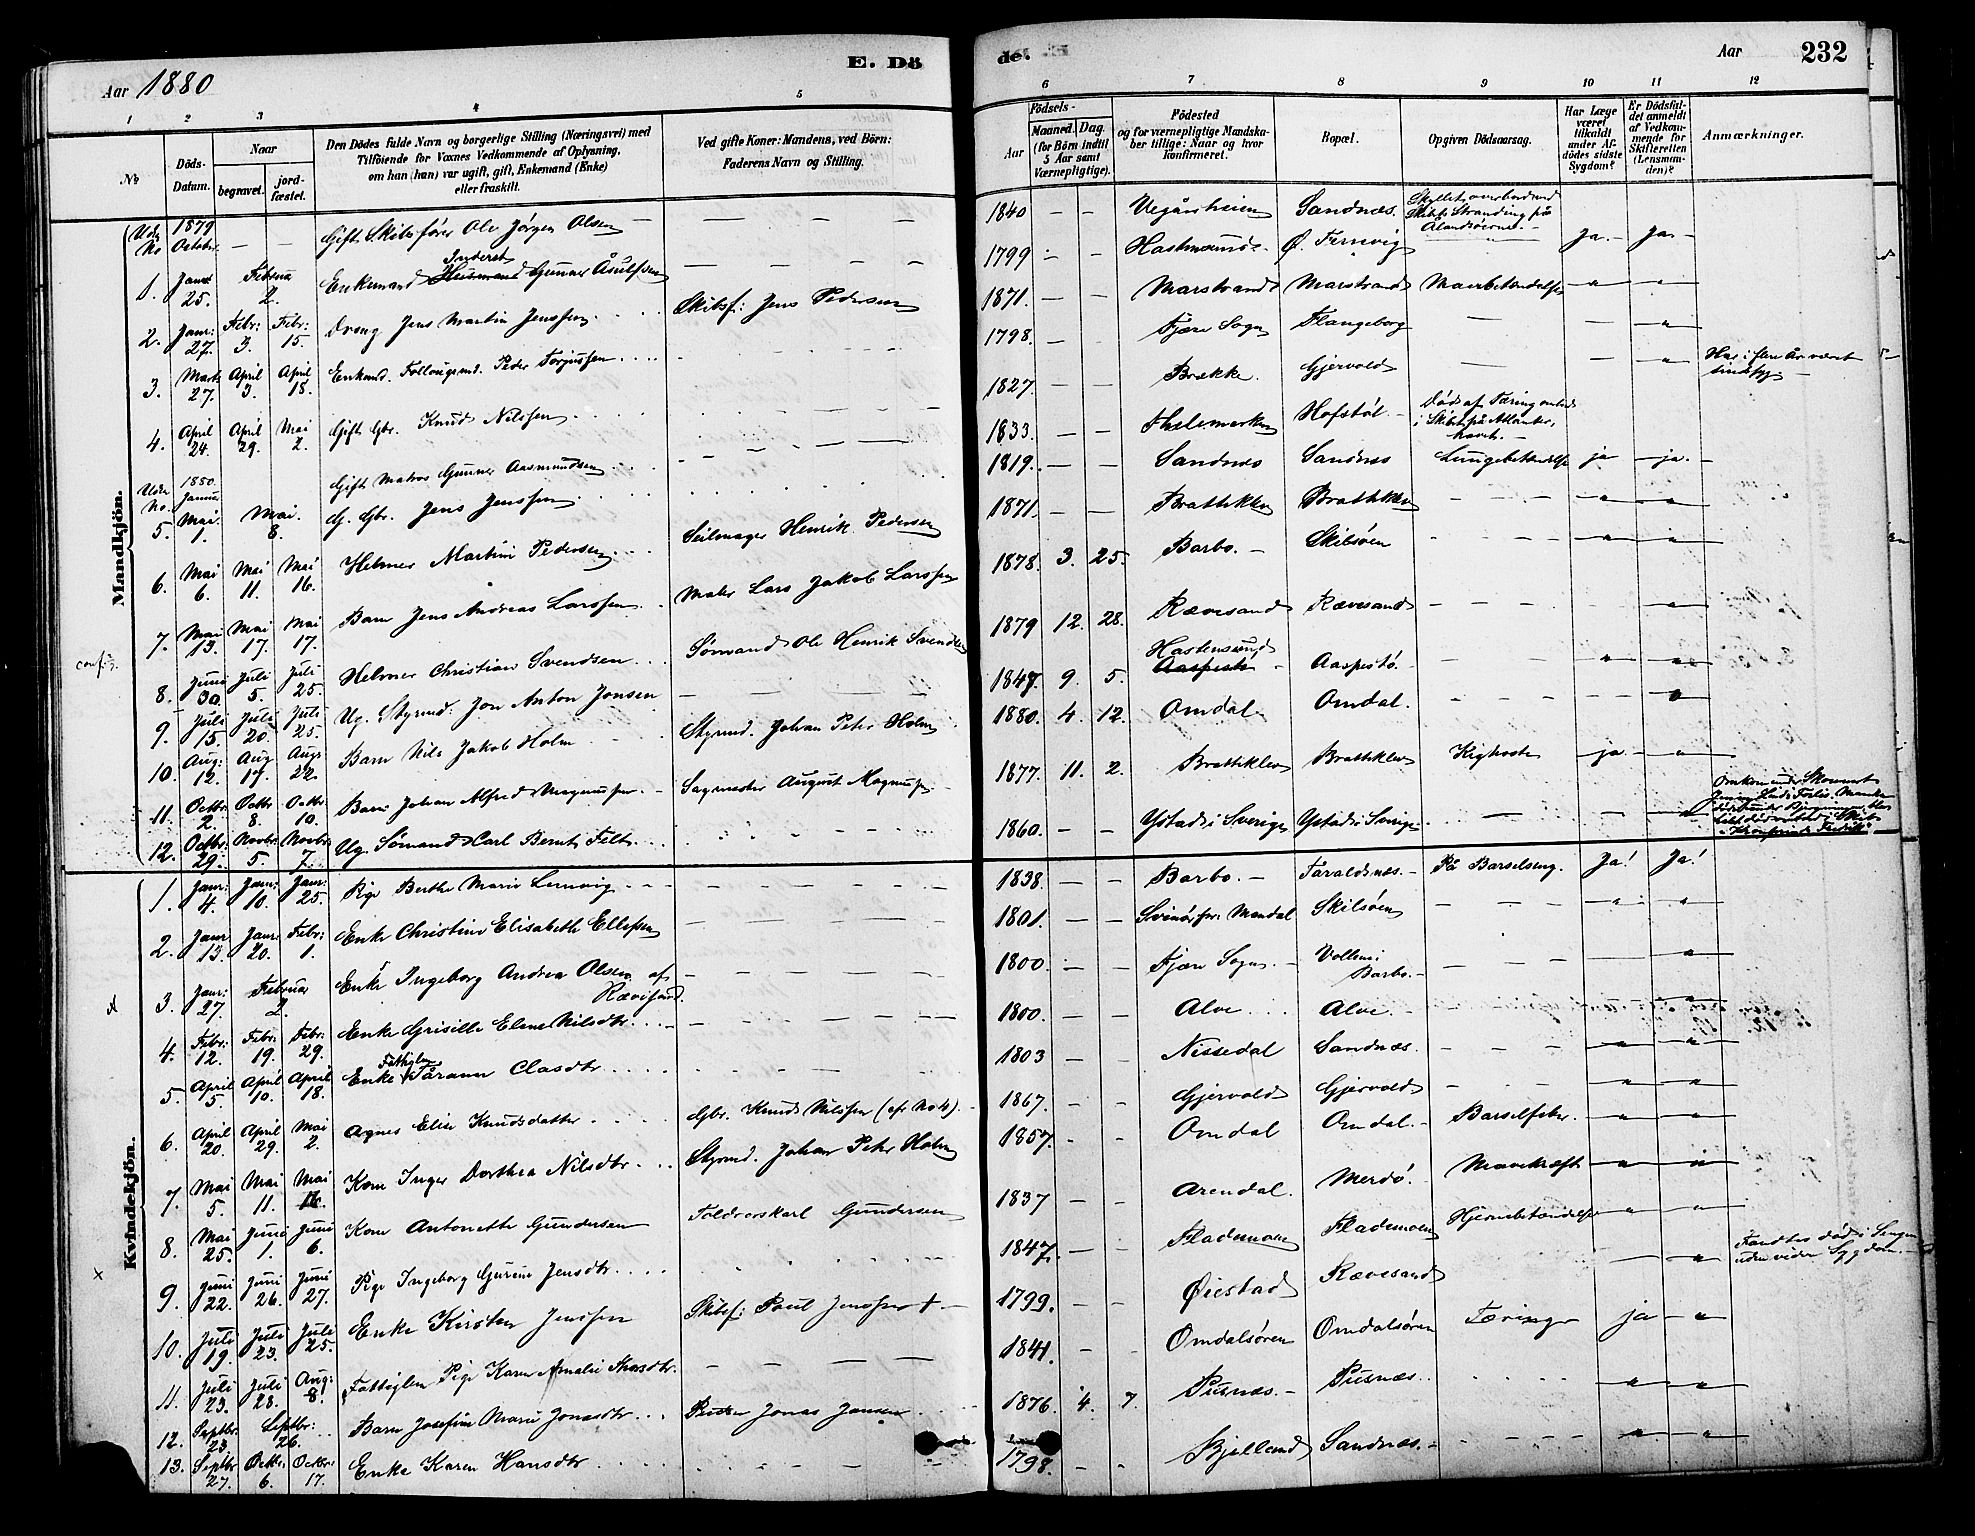 Aar 1880
E. Dö
de.
Aar
232
1 2 3 4 5 6 7 8 9 10 11 12
No
Döds-Datum.
Naar
begravet.
jord-fæstet.
Den Dödes fulde Navn og borgerlige Stilling (Næringsvei) med
Tilföiende for Voxnes Vedkommende af Oplysning,
om han (hun) var ugift, gift, Enkemand (Enke)
eller fraskilt.
Ved gifte Koner: Mandens, ved Börn:
Faderens Navn og Stilling.
Födsels-
Aar
Maaned. Dag.
(for Börn indtil
5 Aar samt
Værnepligtige).
Födested
og for værnepligtige Mandska-
ber tillige: Naar og hvor
konfirmeret.
Bopæl.
Opgiven Dödsaarsag.
Har Læge
været
tilkaldt
under Af-
dödes sidste
Sygdom?
Er Dödsfal-
det anmeldt
af Vedkom-
mende for
Skifteretten
(Lensman-
den)?
Anmærkninger.
Mandkjön.
Uden No 1879 October — — Gift Skibsfører Ole Jørgen Olsen — 1840 — — Vegårsheien Sandnæs.
1. Januar 25. Februar 2. Enkemand Inderst Husmand Gunner Åsulfsen 1799 — — Ø. Ternvig Ja. — Ja. —
2. Janr: 27. Febr: 3. Febr: 15. Dreng Jens Martin Jenssen Skibsf: Jens Pedersen 1871. — — Marstrand Marstrand Mavebetændelse
3. Marts 27. April 3. April 18. Peder Torjussen 1798. — — Fjære Sogn
4. April 24. April 29. Mai 2. Gift Gbr. Knud Nilssen 1827. Brække. Gjervold Har i flere År været sindssyg.
Uden No. 1880. Januar Gift Matros Gunner Aasmundsen 1833. — — Thelemarken Hofstøl Død af Tæring ombord i Skibet på Atlanterhavet.
5. Mai 1. Mai. 8. G. Gbr. Jens Jenssen 1819. — — Sandnæs Sandnæs Lungebetændelse ja — ja.
6. Mai 6. Mai 11. Mai 16. Helmer Martin Pedersen Seilmager Henrik Pedersen 1871. — — Bratteklev Bratteklev
7. Mai 13. Mai 17. Mai 17. Barn Jens Andreas Larssen Maler Lars Jakob Larssen 1878. 3. 25. Barbo. — Skilsøen
8. Juni 30. Juli 5. Juli 25. Helmer Christian Svendsen Sømand Ole Henrik Svendsen 1879 12. 28. Rævesand Rævesand
9. Juli 15. Juli 20 Juli 25. Ug. Styrmd. Jon Anton Jonsen 1847. 9. 5. Hastensund Aaspestø Aaspestø.
10. Aug: 12. Aug 17. Aug: 22. Barn Nils Jakob Holm Styrmd. Johan Peter Holm 1880. 4. 12. Omdal Omdal.
11. Octbr. 2. Octbr. 8. Octbr. 10. Barn Johan Alfred Magnussen Sagmester August Magnussen 1877. 11. 2. Bratteklev Bratteklev Kighoste ja
12. Octbr. 29. Novbr. 5. Novbr. 7. Ug. Sømand Carl Bernt Felt 1860. — — Ystad i Sverige Ystad i Sverige
Kvindekjön.
1. Janr: 4. Janr: 10. Janr: 25. Pige Berthe Marie Lernvig 1838. — — Barbo. — Taraldsnæs. På Barselseng. Ja! Ja!
2. Janr 13. Janr: 20. Febr: 1. Enke Christine Elisabeth Ellefsen 1801. — — Mandal Skilsøen
3. Janr: 27. Februar 2. Enke Ingeborg Andrea Olsen af Rævesand. 1800. Fjære Sogn. Barbo.
4. Febr: 12. Febr: 19. Febr: 29. Enke Grisille Elene Nilsdtr. 1800. — — Alve Alve
5. April 5. April 10. April 18. Enke Fattiglem Tårann Clasdtr 1803 — — Nissedal Sandnæs.
6. April 20. April 29. Mai 2. Agnes Elise Knudsdatter Gbr. Knud Nilssen (cfr No 4). 1867. Gjervold Gjervold
7. Mai 5. Mai 11. Mai 16. Kone Inger Dorthea Nilsdtr. Styrmd. Johan Peter Holm 1857. Omdal Omdal. Barselfeber.
8. Mai 25. Juni 1. Juni 6. Kone Antonette Gundersen Toldvorskarl Gundersen 1837 Arendal. Merdø. Mavekræft
9. Juni 22. Juni 26. Juni 27. Pige Ingeborg Gurine Jensdtr. 1847. — — Flademoen Flademoen Hjernebetændelse Fandtes død i Sengen uden videre Sygdom.
10. Juli 19. Juli 23. Juli 25. Enke Kirsten Jenssen Skibsf: Poul Jenssen + 1799. — — Øiestad Rævesand
11. Juli 23. Juli 28. Aug: 8. Fattiglem Pige Karen Amalie 1841. Omdalsøren Omdalsøren Tæring ja
12. Septbr. 23. Septbr: 26. Barn Josefine Marie Jonasdtr. Jonas Jansen 1876. 4. 7. Pusnæs. Pusnæs.
13. Septbr 27. Octbr. 6. Octbr. 17. Enke Karen Hansdtr 1798. Bjelland Sandnæs.